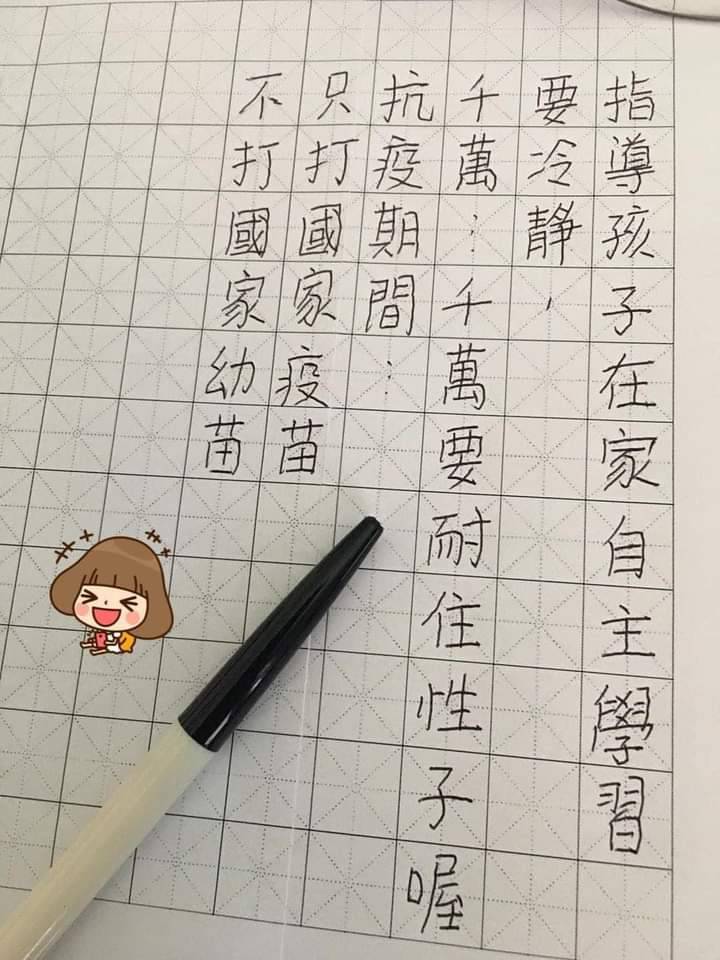 指導孩子在家自主學習
要冷靜，
千萬…千萬要耐住性子喔
抗疫期間…
只打國家疫苗
不打國家幼苗